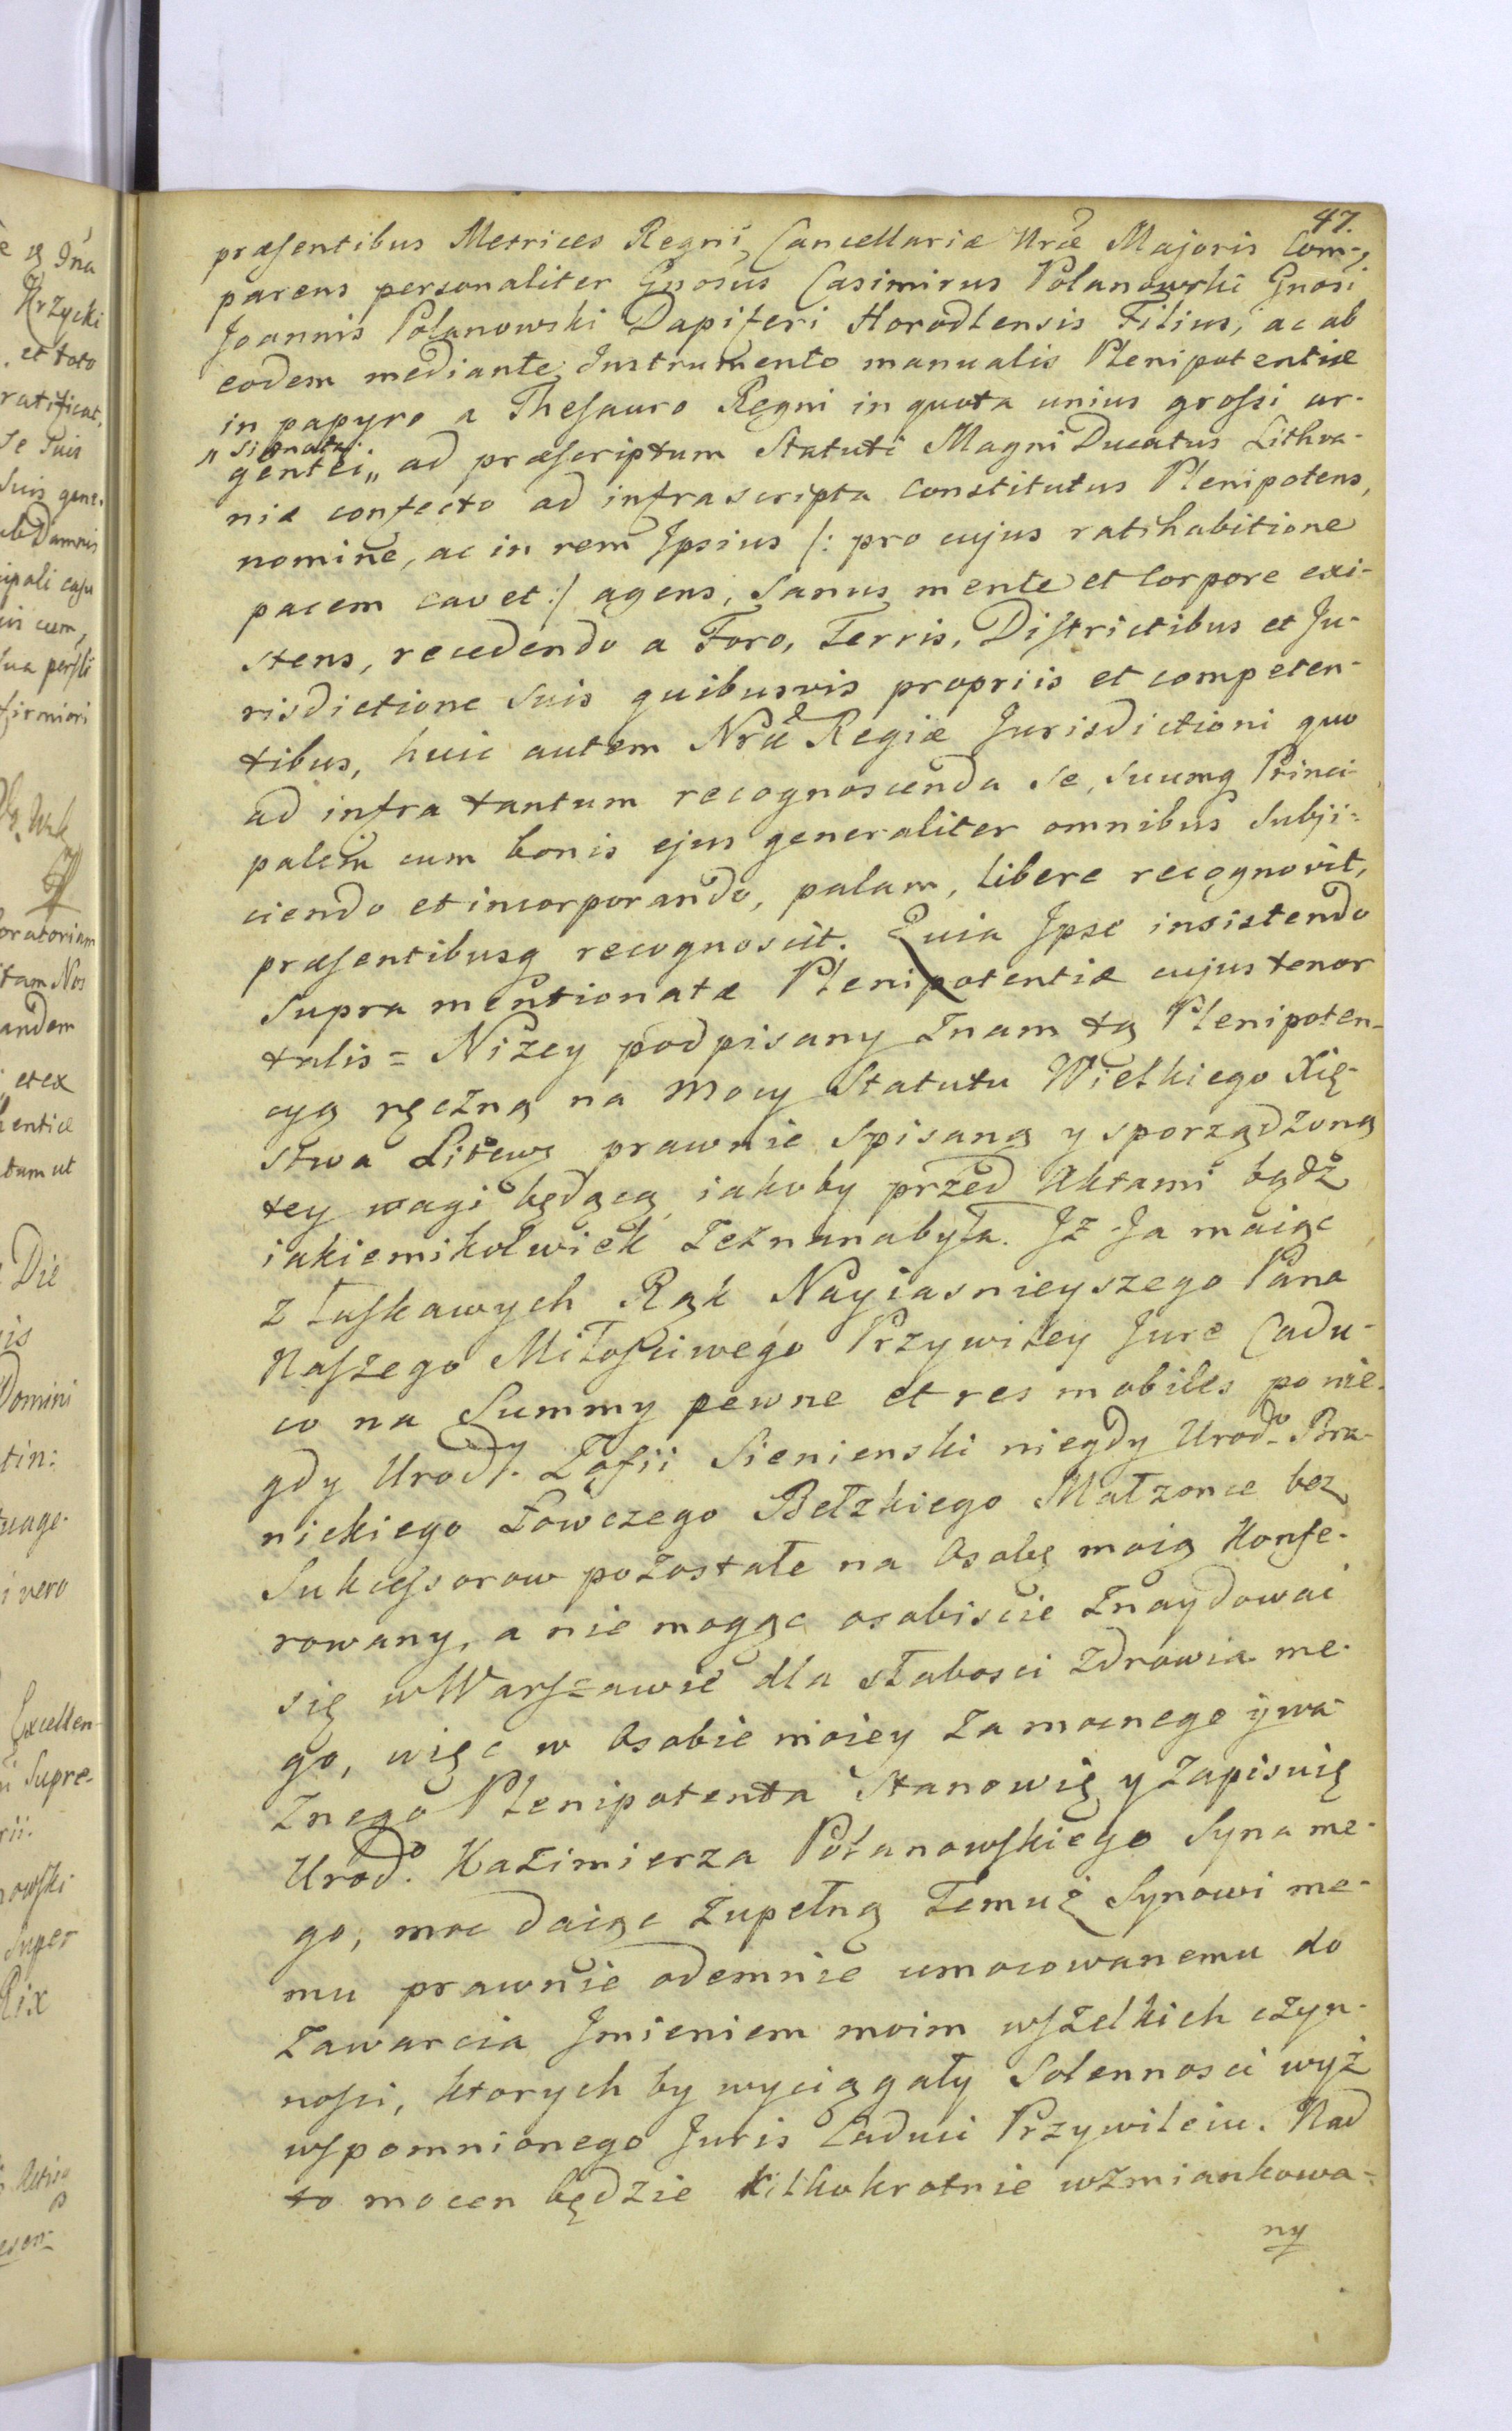 47.
præsentibus Metrices Regni Cancellariæ Nræ Majoris Com-
parens personaliter Gnosus Casimirus Polanowski Gnosi
Joannis Polanowski Dapiferi Horodlensis Filius, ac ab
eodem mediante Instrumento manualis Plenipotentiæ
in papyro a Thesauro Regni in quota unius grossi ar-
„ signata
gentei „ ad præscriptum Statuti Magni Ducatus Lithva-
niæ confecto ad infrascripta constitutus Plenipotens,
nomine, ac in rem Ipsius /: pro cujus ratihabitione
pacem cavet :/ agens, Sanus mente et Corpore exi-
stens, recedendo a Foro, Terris, Districtibus et Ju-
risdictione Suis quibusvis propriis et competen-
tibus, huic autem Nræ Regiæ Jurisdictioni quo
ad infra tantum recognoscenda se, Suumq Princi-
palem cum bonis ejus generaliter omnibus Subji-
ciendo et incorporando, palam, libere recognovit,
præsentibusq recognoscit. Quia Ipse insistendo
Supra mentionatæ Plenipotentiæ cujus tenor
talis = Niżey podpisany Znam tą Plenipoten-
cyą ręczną na Mocy Statutu Wielkiego Xię-
stwa Litewg prawnie Spisaną y sporządzoną
tey wagi będącą, iakoby przed Aktami bądź
iakiemikolwiek zeznana była. Iż Ja maiąc
z łaskawych Rąk Nayiasnieyszego Pana
Naszego Miłościwego Przywiley Jure Cadu-
co na Summy pewne et res mobiles po nie-
gdy Urodz. Zofii Sienienski niegdy Urodo Bra-
nickiego Łowczego Bełzkiego Małżonce bez
Sukcessorow pozostałe na Osobę moią Konfe-
rowany, a nie mogąc osobiscie Znaydowac
się w Warszawie dla słabosci zdrowia me-
go, więc w Osobie moiey za mocnego y wa-
znego Plenipotenta Stanowię y zapisuię
Urodo. Kazimierza Polanowskiego Syna me-
go, moc daiąc zupełną Temuż Synowi me-
mu prawnie odemnie umocowanemu do
zawarcia Imieniem moim wszelkich czyn-
nosci, ktorych by wyciągały Solennosci wyż
wspomnionego Juris Caduci Przywileiu. Nad
to mocen będzie kilkokrotnie wzmiankowa-
ny